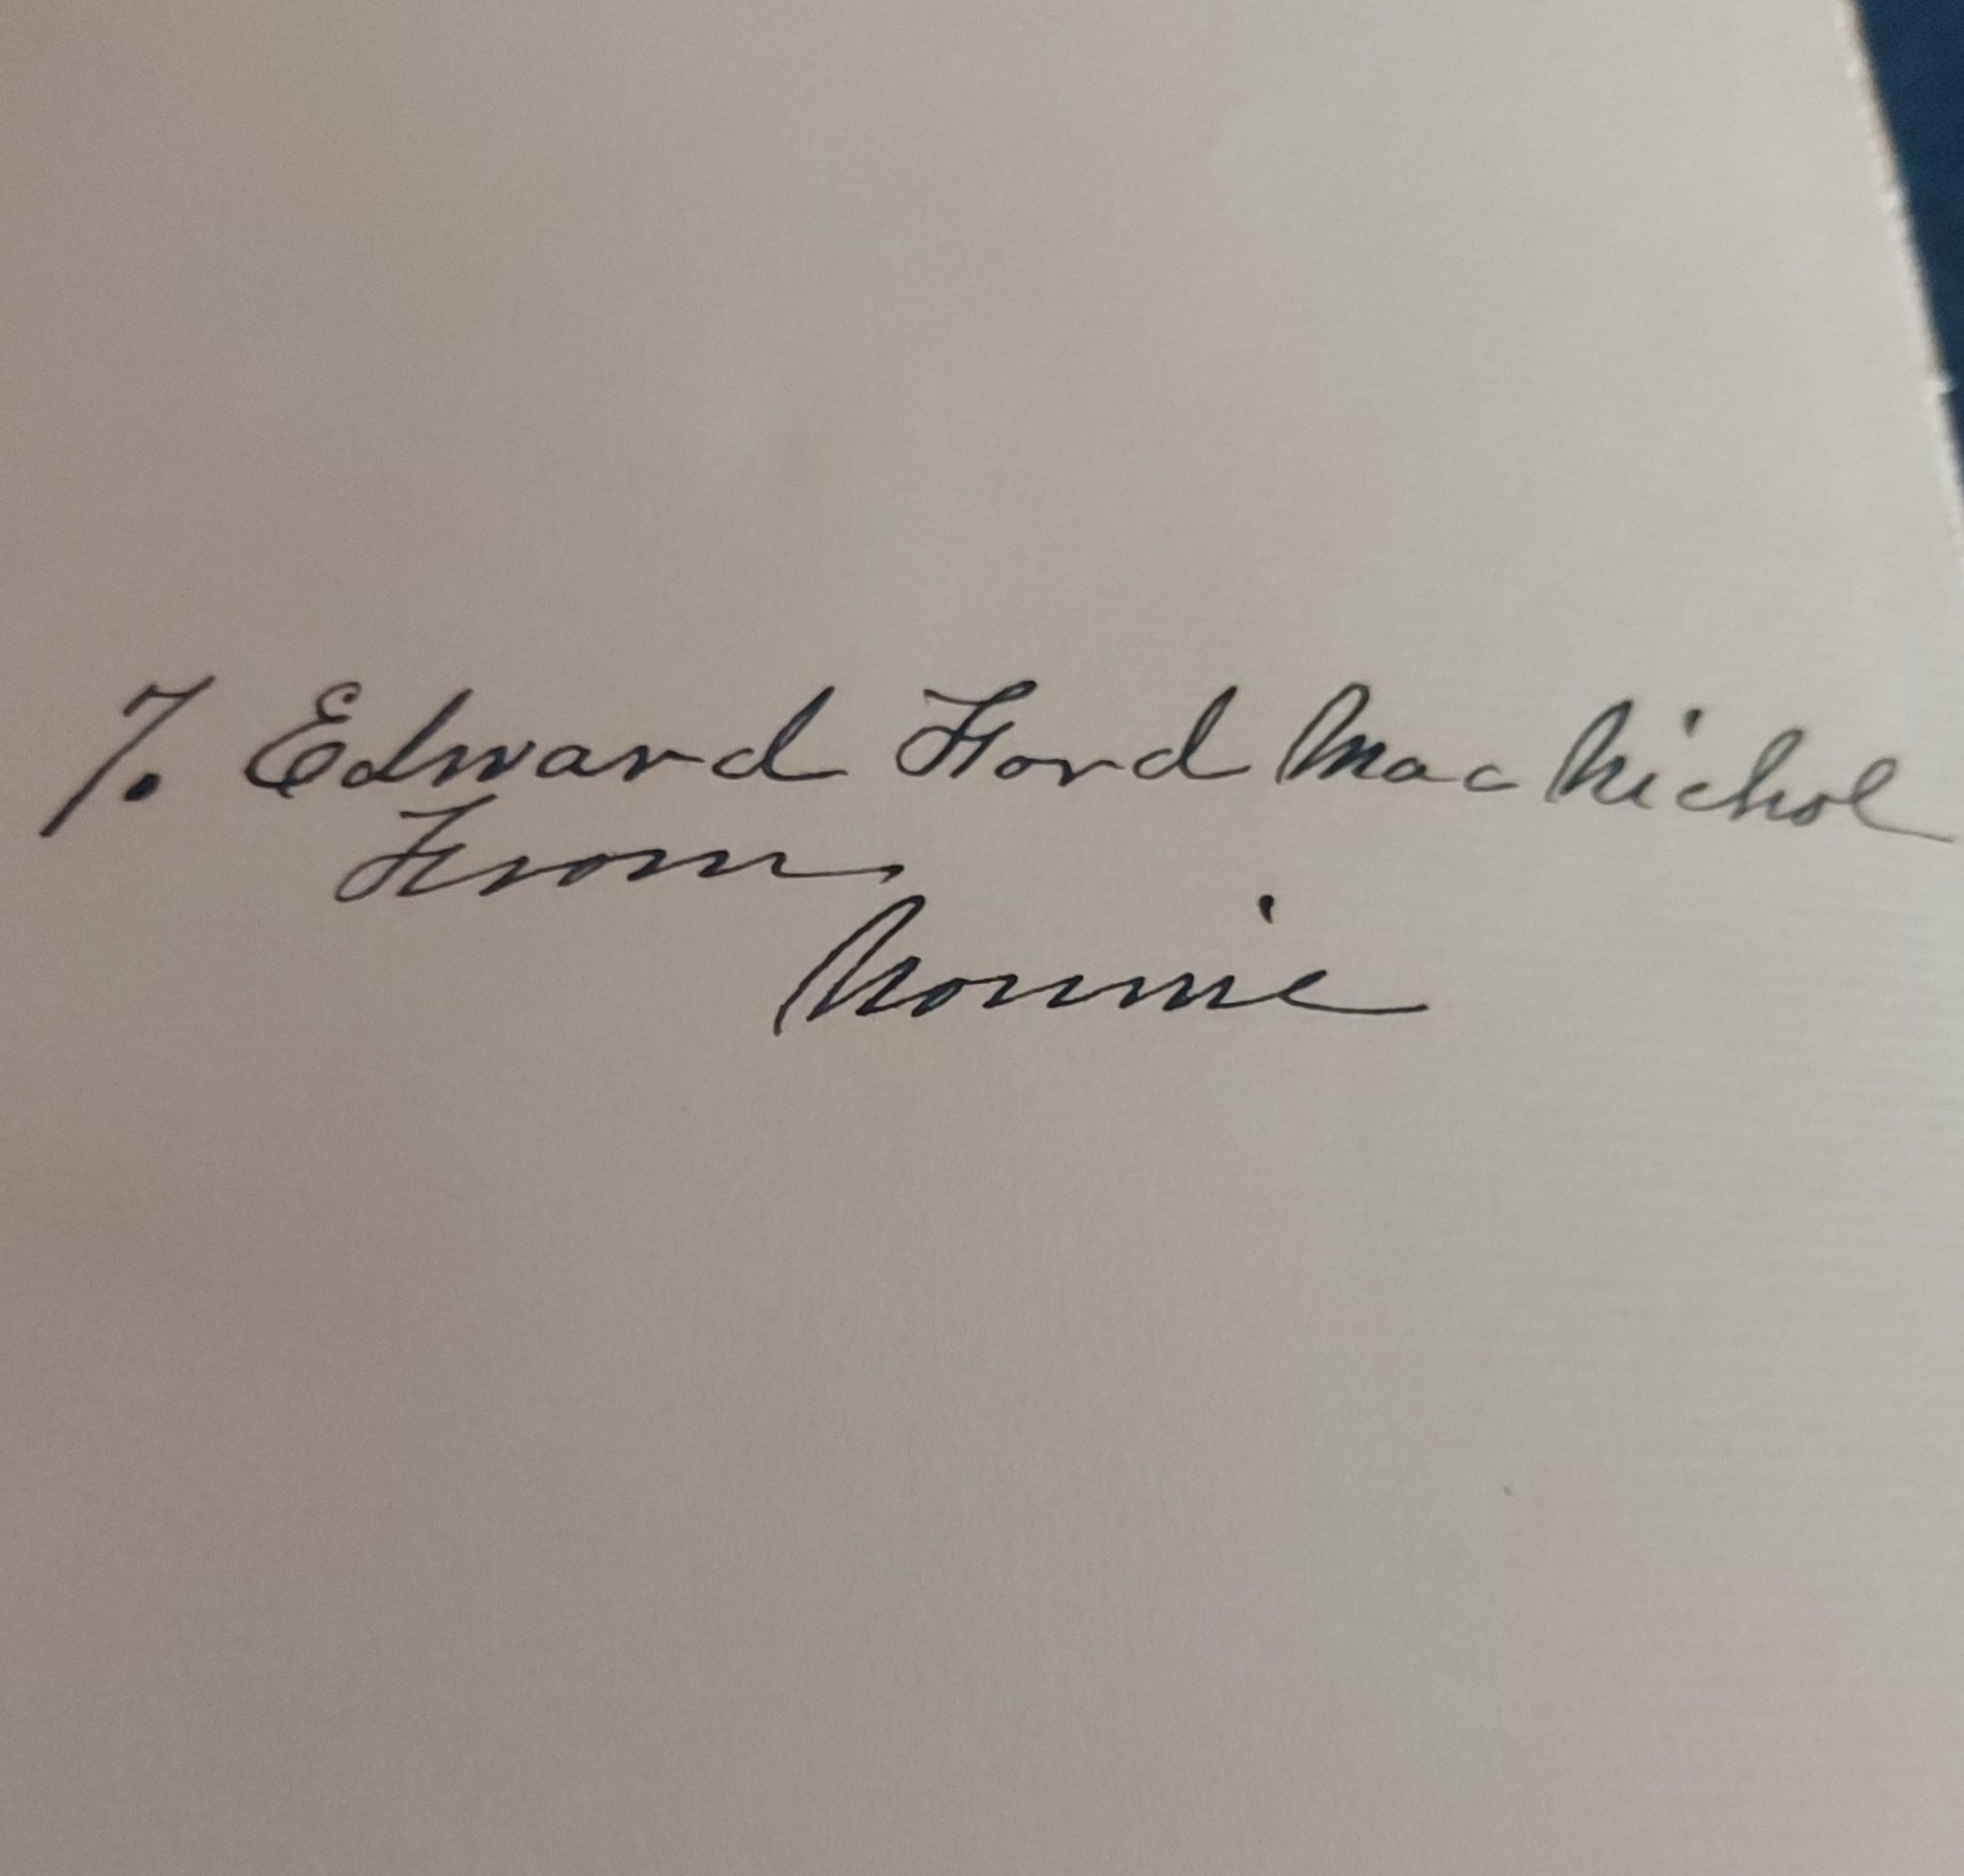 T. Edward Ford MacNichol
From
Nonnie